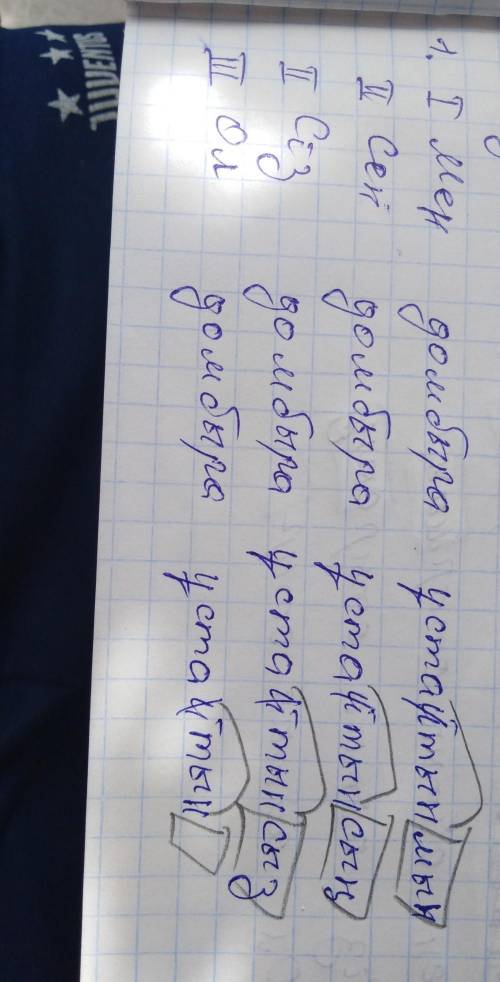 1. I Мен домбыра ұстайтынмын
II Сен домбыра ұстайтынсың
II Сіз домбыра ұстайтынсыз
III Ол домбыра ұстайтын